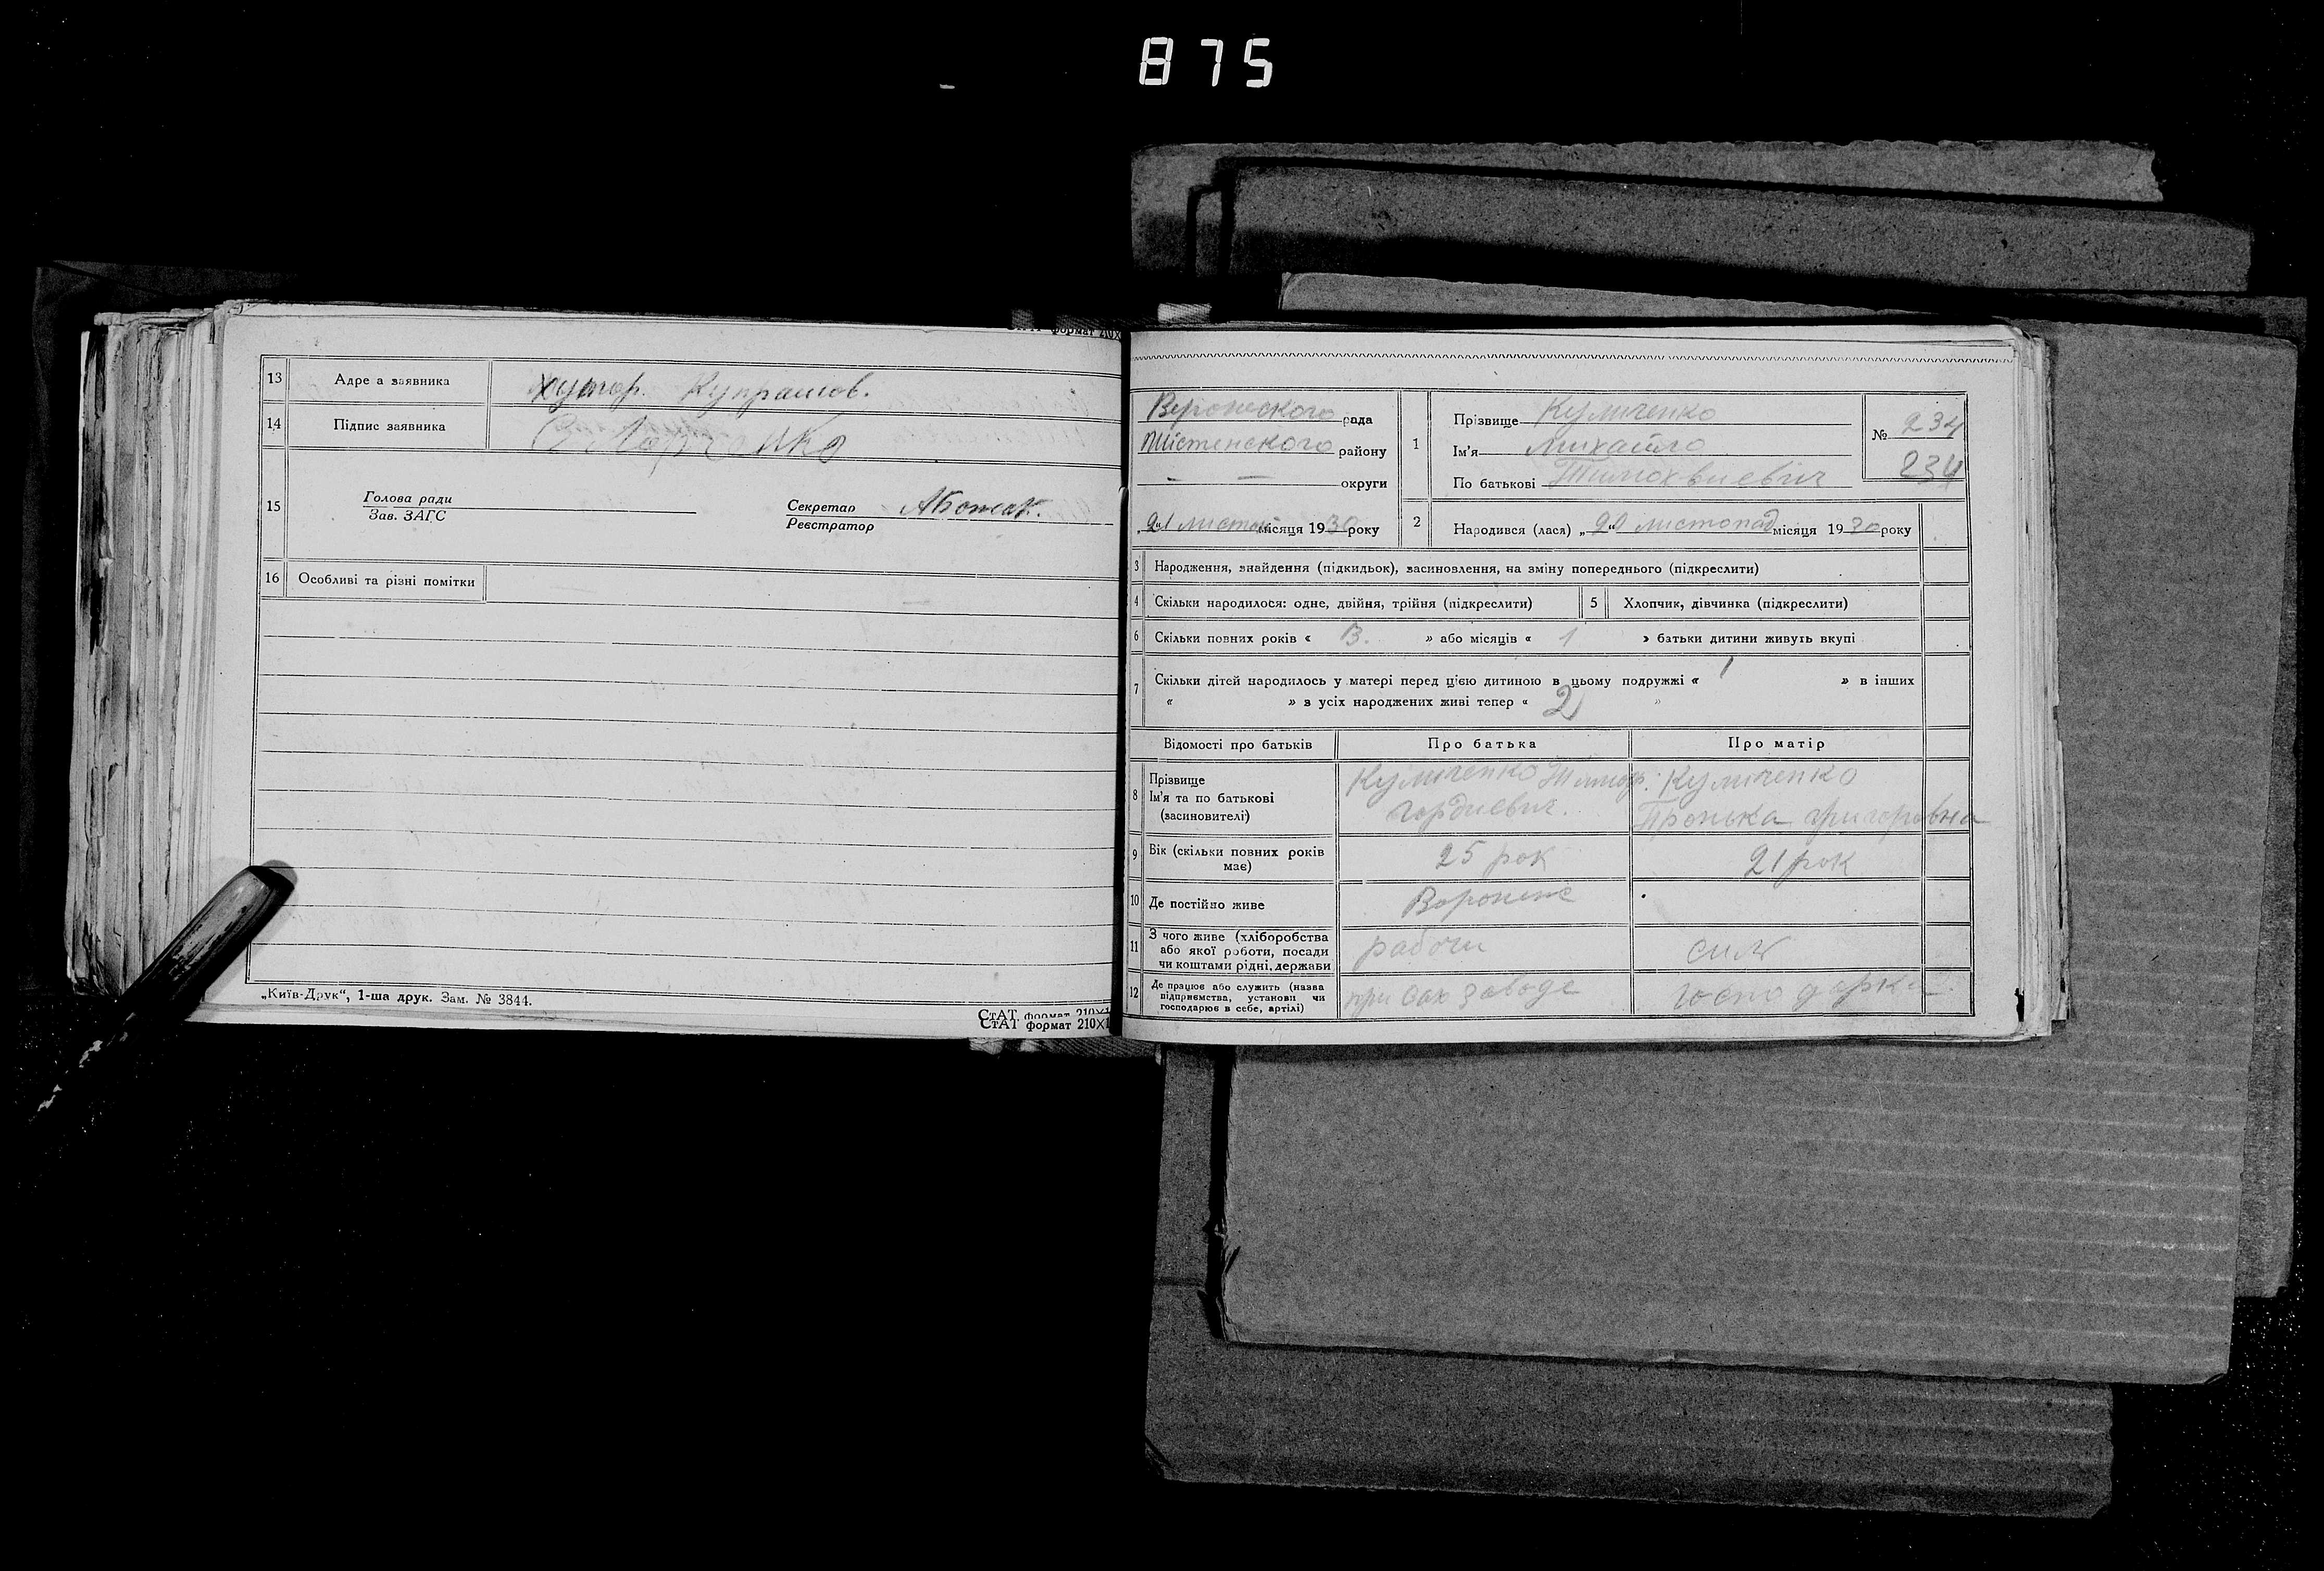 875
СтАТ формат 210×
13 Адре а заявника хутор. Купрашов.
14 Підпис заявника
15 Голова ради
Зав. ЗАГС
Секретар
Реєстратор
16 Особливі та різні помітки
„Київ-Друк“, 1-ша друк. Зам. № 3844.
СтАТ формат 210×1
СтАТ формат 210×1
рада
району
округи
„21“ листоп місяця 1930 року
1 Прізвище Куличенко
Ім'я Михайло
По батькові
№ 234
234
2 Народився (лася) „20“ листопад місяця 1930 року
3 Народження, знайдення (підкидьок), засиновлення, на зміну попереднього (підкреслити)
4 Скільки народилося: одне, двійня, трійня (підкреслити)
5 Хлопчик, дівчинка (підкреслити)
6 Скільки повних років « 3. » або місяців « 1 » батьки дитини живуть вкупі
7 Скільки дітей народилось у матері перед цією дитиною в цьому подружжі « 1 » в інших
« » з усіх народжених живі тепер « 2 »
Відомості про батьків Про батька Про матір
8 Прізвище
Ім'я та по батькові
(засиновителі)
Куличенко Тимоф.
Гордиевич.
Куличенко
Григоровна
9 Вік (скільки повних років
має)
25 рок
21 рок
10 Де постійно живе Воронеж
11 З чого живе (хліборобства
або якої роботи, посади
чи коштами рідні, держави
рабочи
12 Де працює або служить (назва
підприємства, установи чи
господарює в себе, артілі)
при Сах Заводе
господарка.